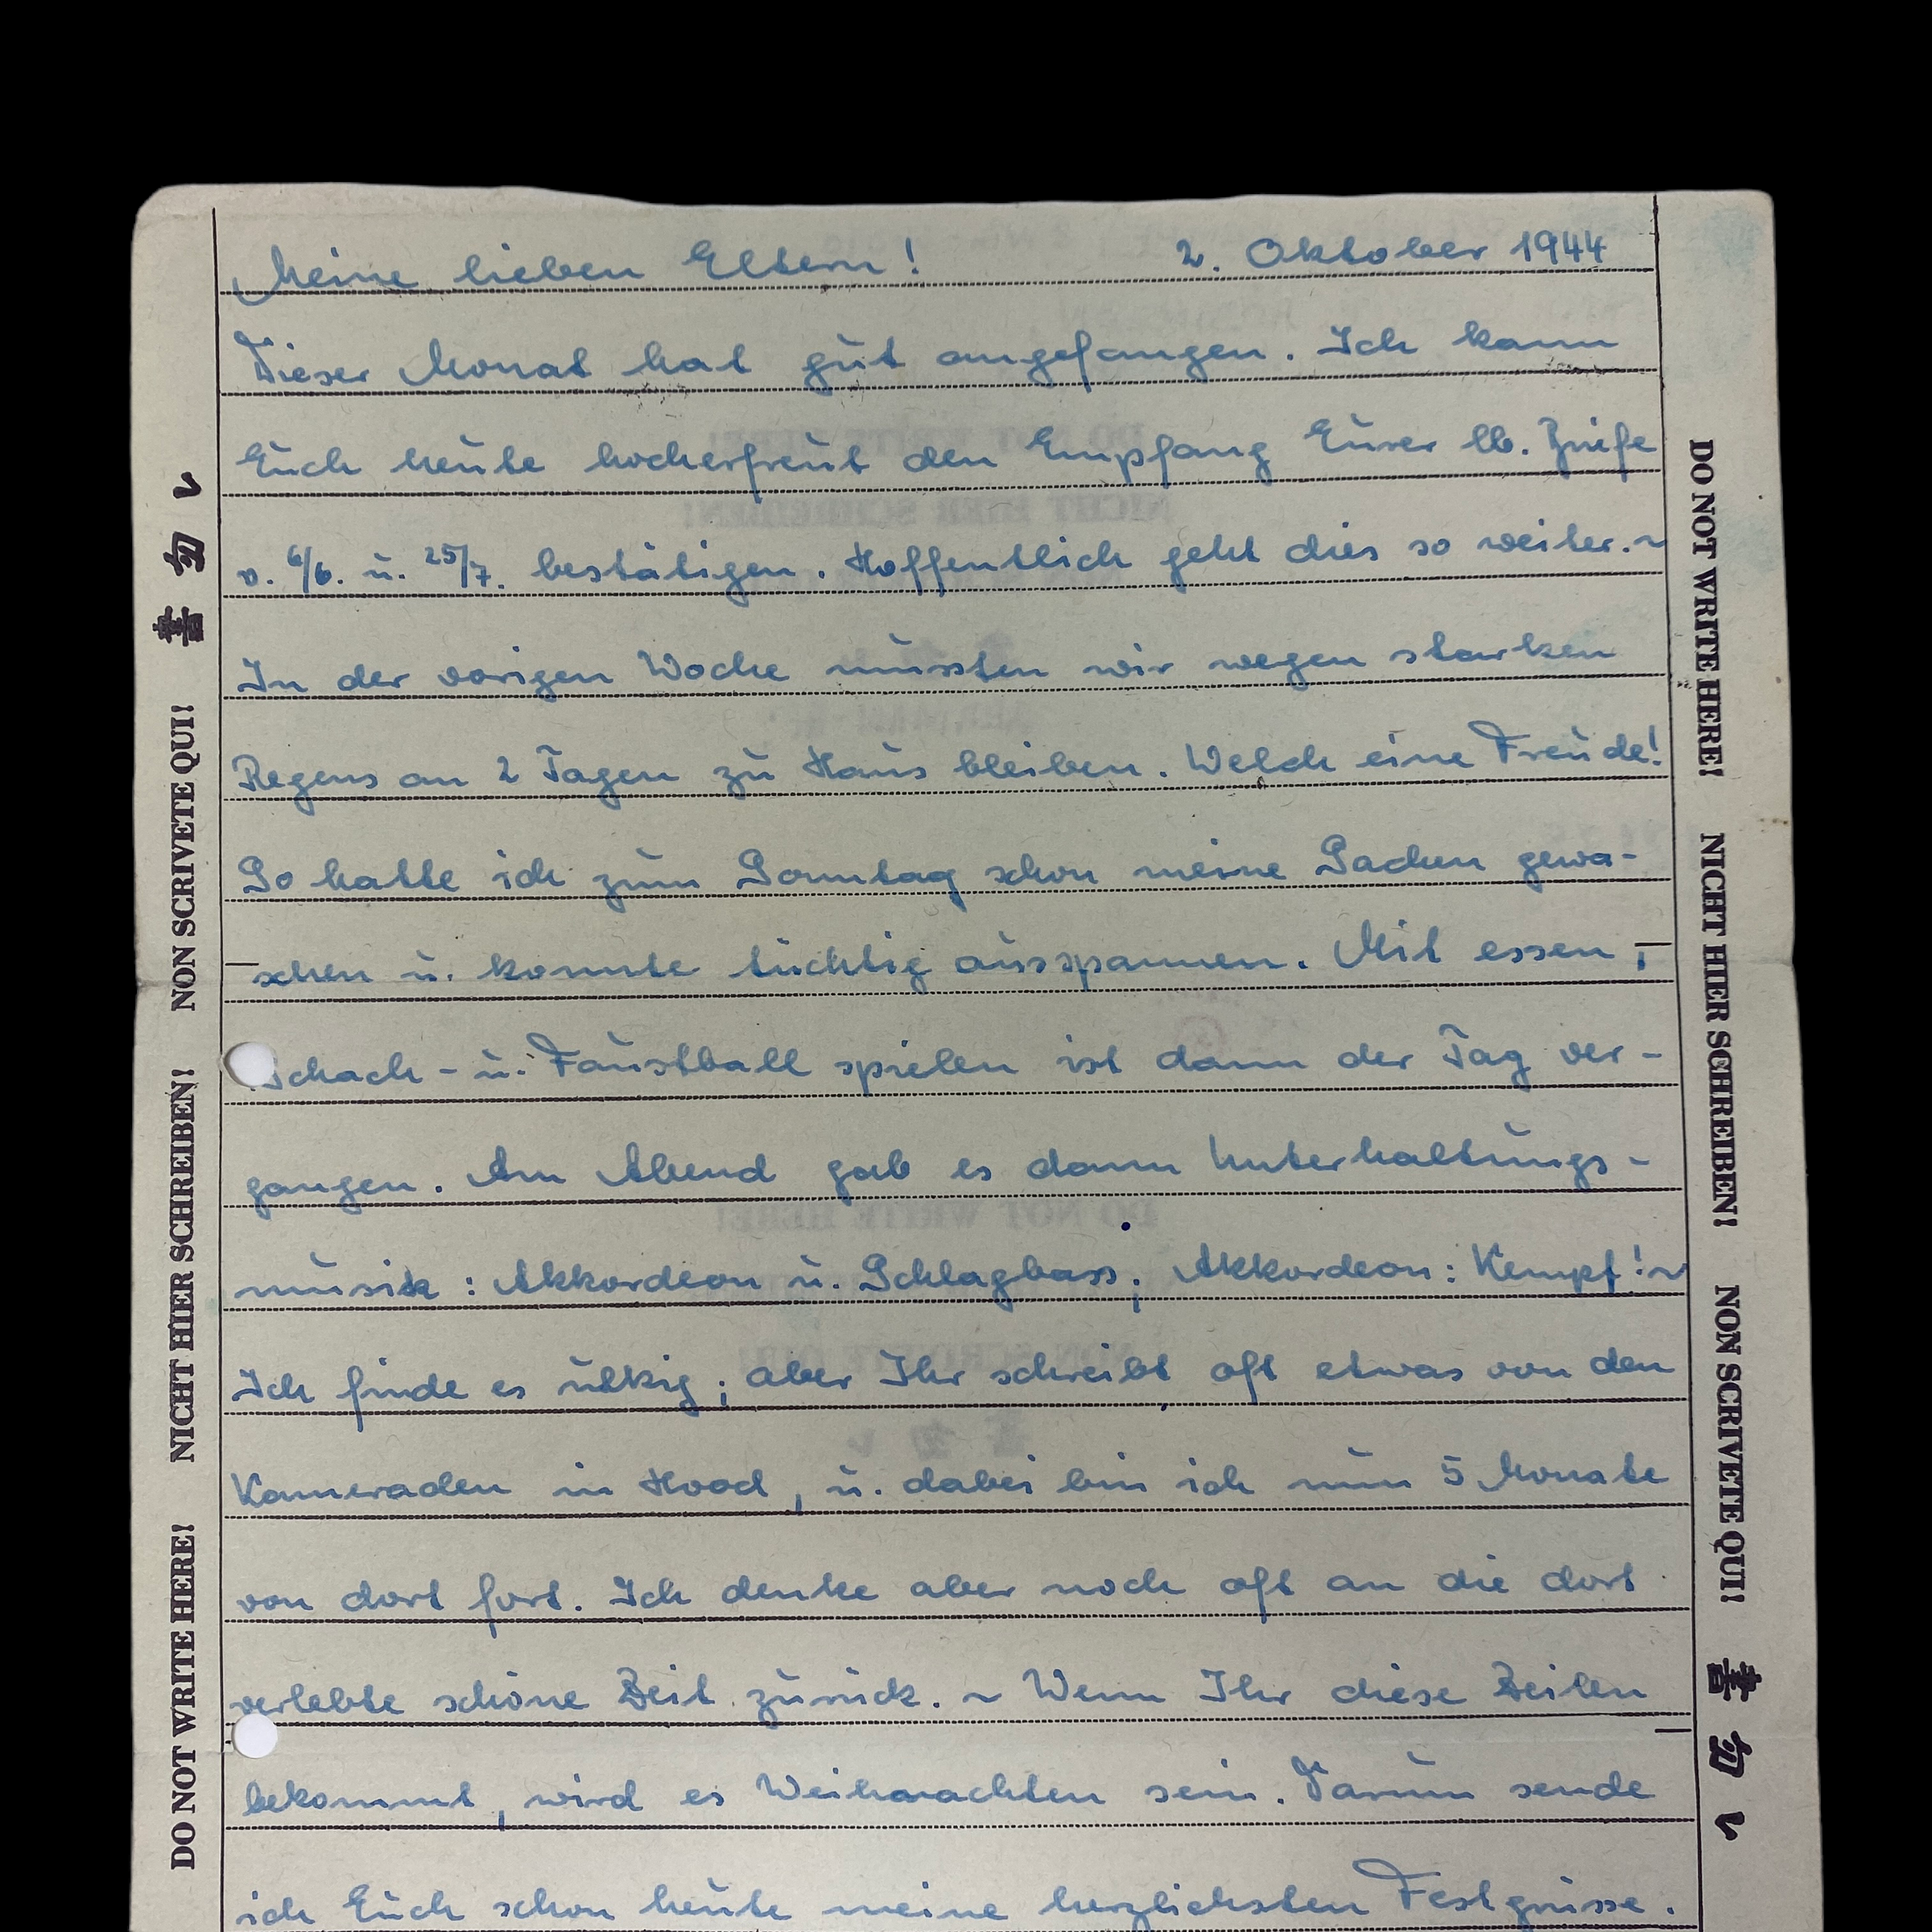 Meine lieben Eltern! 2. Oktober 1944
Dieser Monat hat gut angefangen. Ich kann
Euch heute hocherfreut den Empfang Eurer lb. Briefe
v. 6/6. u. 25/7. bestätigen. Hoffentlich geht dies so weiter. ~
In der vorigen Woche mussten wir wegen starken
Regens an 2 Tagen zu Haus bleiben. Welch eine Freude!
So hatte ich zum Sonntag schon meine Sachen gewa-
schen u. konnte tüchtig ausspannen. Mit essen,
Schach- u. Faustball spielen ist dann der Tag ver-
gangen. Am Abend gab es dann Unterhaltungs-
musik: Akkordeon u. Schlagbass; Akkordeon: Kempf! ~
Ich finde es ulkig; aber Ihr schreibt oft etwas von den
Kameraden in Hood, u. dabei bin ich nun 5 Monate
von dort fort. Ich denke aber noch oft an die dort
verlebte schöne Zeit zurück. ~ Wenn Ihr diese Zeilen
bekommt, wird es Weihnachten sein. Darum sende
ich Euch schon heute meine herzlichsten Festgrüsse.
DO NOT WRITE HERE! NICHT HIER SCHREIBEN! NON SCRIVETE QUI! 書勿レ
DO NOT WRITE HERE! NICHT HIER SCHREIBEN! NON SCRIVETE QUI! 書勿レ